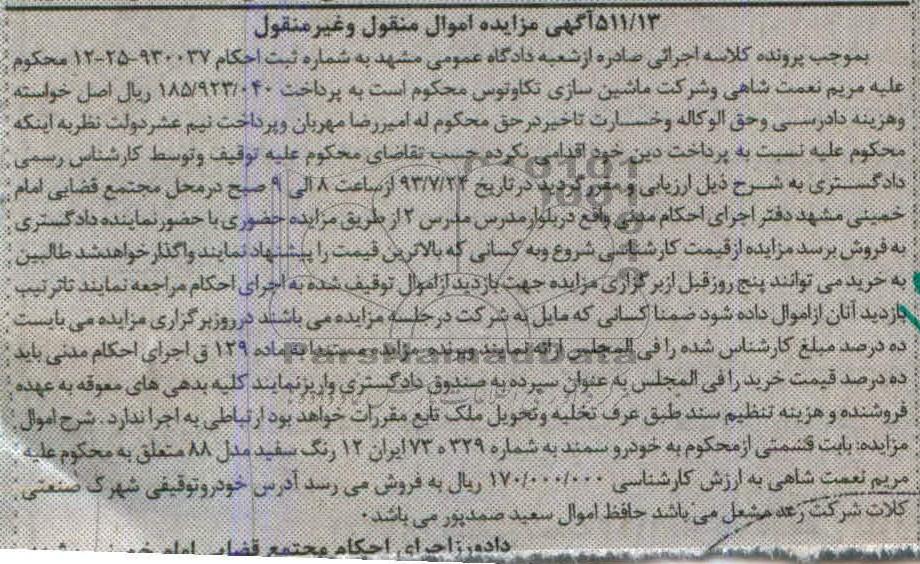 ۵۱۱/۱۳آگهی مزایده اموال منقول وغیرمنقول
بموجب پرونده کلاسه اجرائی صادره ازشعبه دادگاه عمومی مشهد به شماره ثبت احکام ۹۳۰۰۳۷-۲۵-۱۲ محکوم
علیه مریم نعمت شاهی وشرکت ماشین سازی تکاوتوس محکوم است به پرداخت ۱۸۵/۹۲۳/۰۴۰ ریال اصل خواسته
وهزینه دادرسی وحق الوکاله وخسارت تاخیردرحق محکوم له امیررضا مهربان وپرداخت نیم عشردولت نظربه اینکه
محکوم علیه نسبت به پرداخت دین خود اقدامی نکرده حسب تقاضای محکوم علیه توقیف وتوسط کارشناس رسمی
دادگستری به شرح ذیل ارزیابی و مقررگردید درتاریخ ۹۳/۷/۲۴ ازساعت ۸ الی ۹ صبح درمحل مجتمع قضایی امام
خمینی مشهد دفتر اجرای احکام مدنی واقع دربلوارمدرس مدرس ۲ ازطریق مزایده حضوری با حضورنماینده دادگستری
به فروش برسد مزایده ازقیمت کارشناسی شروع وبه کسانی که بالاترین قیمت را پیشنهاد نمایند واگذارخواهدشد طالبین
به خرید می توانند پنج روزقبل ازبرگزاری مزایده جهت بازدید ازاموال توقیف شده به اجرای احکام مراجعه نمایند تاترتیب
بازدید آنان ازاموال داده شود ضمنا کسانی که مایل به شرکت درجلسه مزایده می باشند درروزبرگزاری مزایده می بایست
ده درصد مبلغ کارشناس شده را فی المجلس ارائه نمایند برنده مزایده مستندا به ماده ۱۲۹ ق اجرای احکام مدنی باید
ده درصد قیمت خرید را فی المجلس به عنوان سپرده به صندوق دادگستری واریزنمایند کلیه بدهی های معوقه به عهده
فروشنده و هزینه تنظیم سند طبق عرف تخلیه وتحویل ملک تابع مقررات خواهد بود ارتباطی به اجرا ندارد . شرح اموال
مزایده: بابت قسمتی ازمحکوم به خودرو سمند به شماره ۳۲۹ ه ۷۳ ایران ۱۲ رنگ سفید مدل ۸۸ متعلق به محکوم علیه
مریم نعمت شاهی به ارزش کارشناسی ۱۷۰/۰۰۰/۰۰۰ ریال به فروش می رسد آدرس خودروتوقیفی شهرک صنعتی
کلات شرکت رعد مشعل می باشد حافظ اموال سعید صمدپور می باشد.
دادورزاجرای احکام مجتمع قضایی امام خمینی مشهد
ParsNamadData